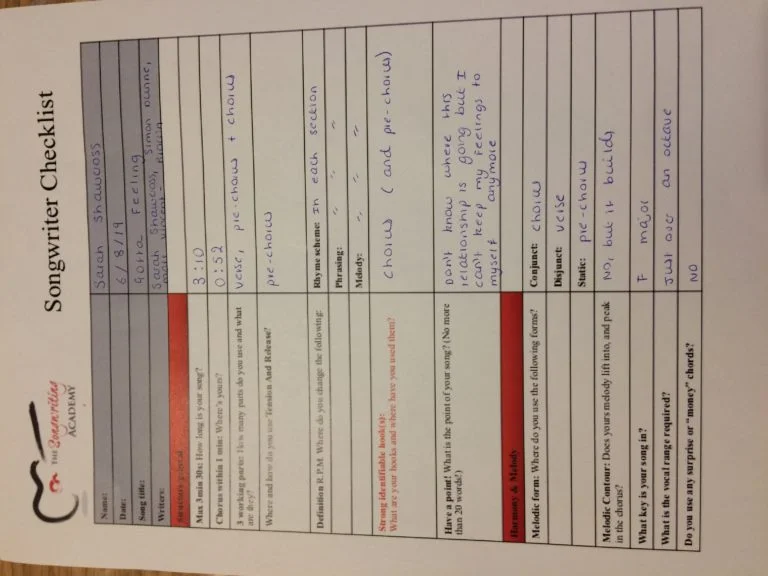 THE Songwriting
ACADEMY
Songwriter Checklist
Name: Sarah Shawcross
Date: 6/8/19
Song title: Gotta Feeling
Writers: Sarah Shawcross, Simon Dunne,
Matt Vincent-
Structure
Max 3min 30s: How long is your song? 3:10
Chorus within 1 min: Where's yours? 0:52
3 working parts: How many parts do you use and what
are they? Verse, pre-chorus + chorus
Where and how do you use Tension And Release? pre-chorus
Definition R.P.M. Where do you change the following: Rhyme scheme: In each section
Phrasing: " "
Melody: " "
Strong identifiable hook(s):
What are your hooks and where have you used them? chorus (and pre-chorus)
Have a point! What is the point of your song? (No more
than 20 words!)
Don't know where this
relationship is going but I
can't keep my feelings to
myself anymore
Harmony & Melody
Melodic form: Where do you use the following forms? Conjunct: chorus
Disjunct: verse
Static: pre-chorus
Melodic Contour: Does yours melody lift into, and peak
in the chorus? No, but it builds
What key is your song in? F major
What is the vocal range required? Just over an octave
Do you use any surprise or "money" chords? NO